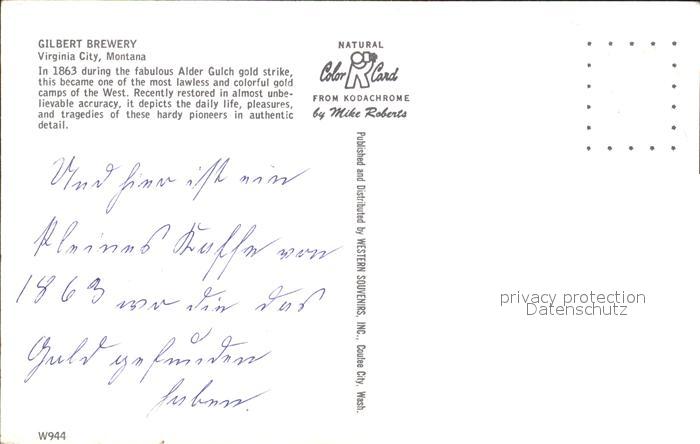 GILBERT BREWERY
Virginia City, Montana
In 1863 during the fabulous Alder Gulch gold strike,
this became one of the most lawless and colorful gold
camps of the West. Recently restored in almost unbe-
lievable accuracy, it depicts the daily life, pleasures,
and tragedies of these hardy pioneers in authentic
detail.
NATURAL
Color Card
FROM KODACHROME
by Mike Roberts
Published and Distributed by WESTERN SOUVENIRS, INC., Coulee City, Wash.
Und hier ist ein
kleines Kaffe von
1863 wo die das
Gold gefunden
haben.
privacy protection
Datenschutz
W944